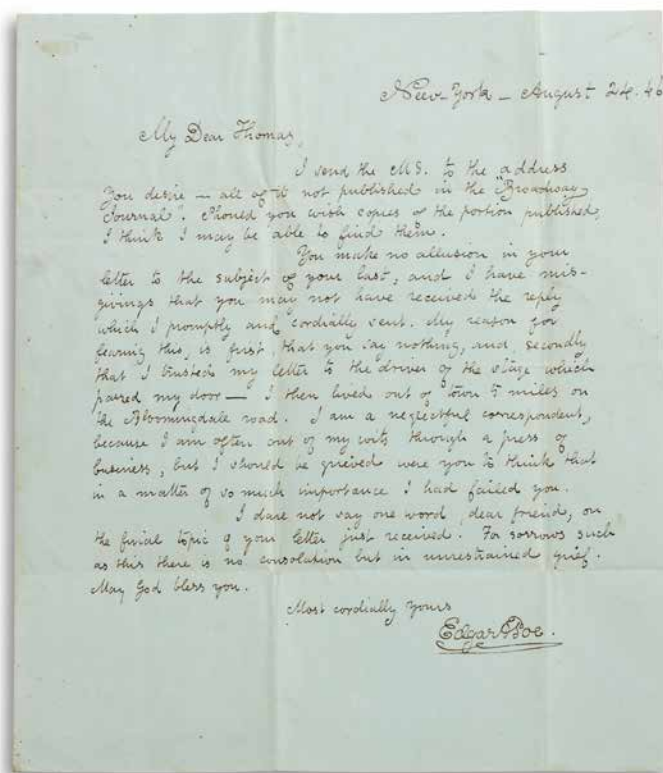 New-York — August 24. 46
My Dear Thomas,
I send the MS. to the address
you desire — all of it not published in the "Broadway
Journal". Should you wish copies of the portion published,
I think I may be able to find them.
You make no allusion in your
letter to the subject of your last, and I have mis-
givings that you may not have received the reply
which I promptly and cordially sent. My reason for
fearing this, is first, that you say nothing, and secondly
that I trusted my letter to the driver of the stage which
passed my door — I then lived out of town 5 miles on
the Bloomingdale road. I am a neglectful correspondent,
because I am often out of my wits through a press of
business, but I should be grieved were you to think that
in a matter of so much importance I had failed you.
I dare not say one word, dear friend, on
the final topic of your letter just received. For sorrows such
as this there is no consolation but in unrestrained grief.
May God bless you.
Most cordially yours
Edgar A Poe.